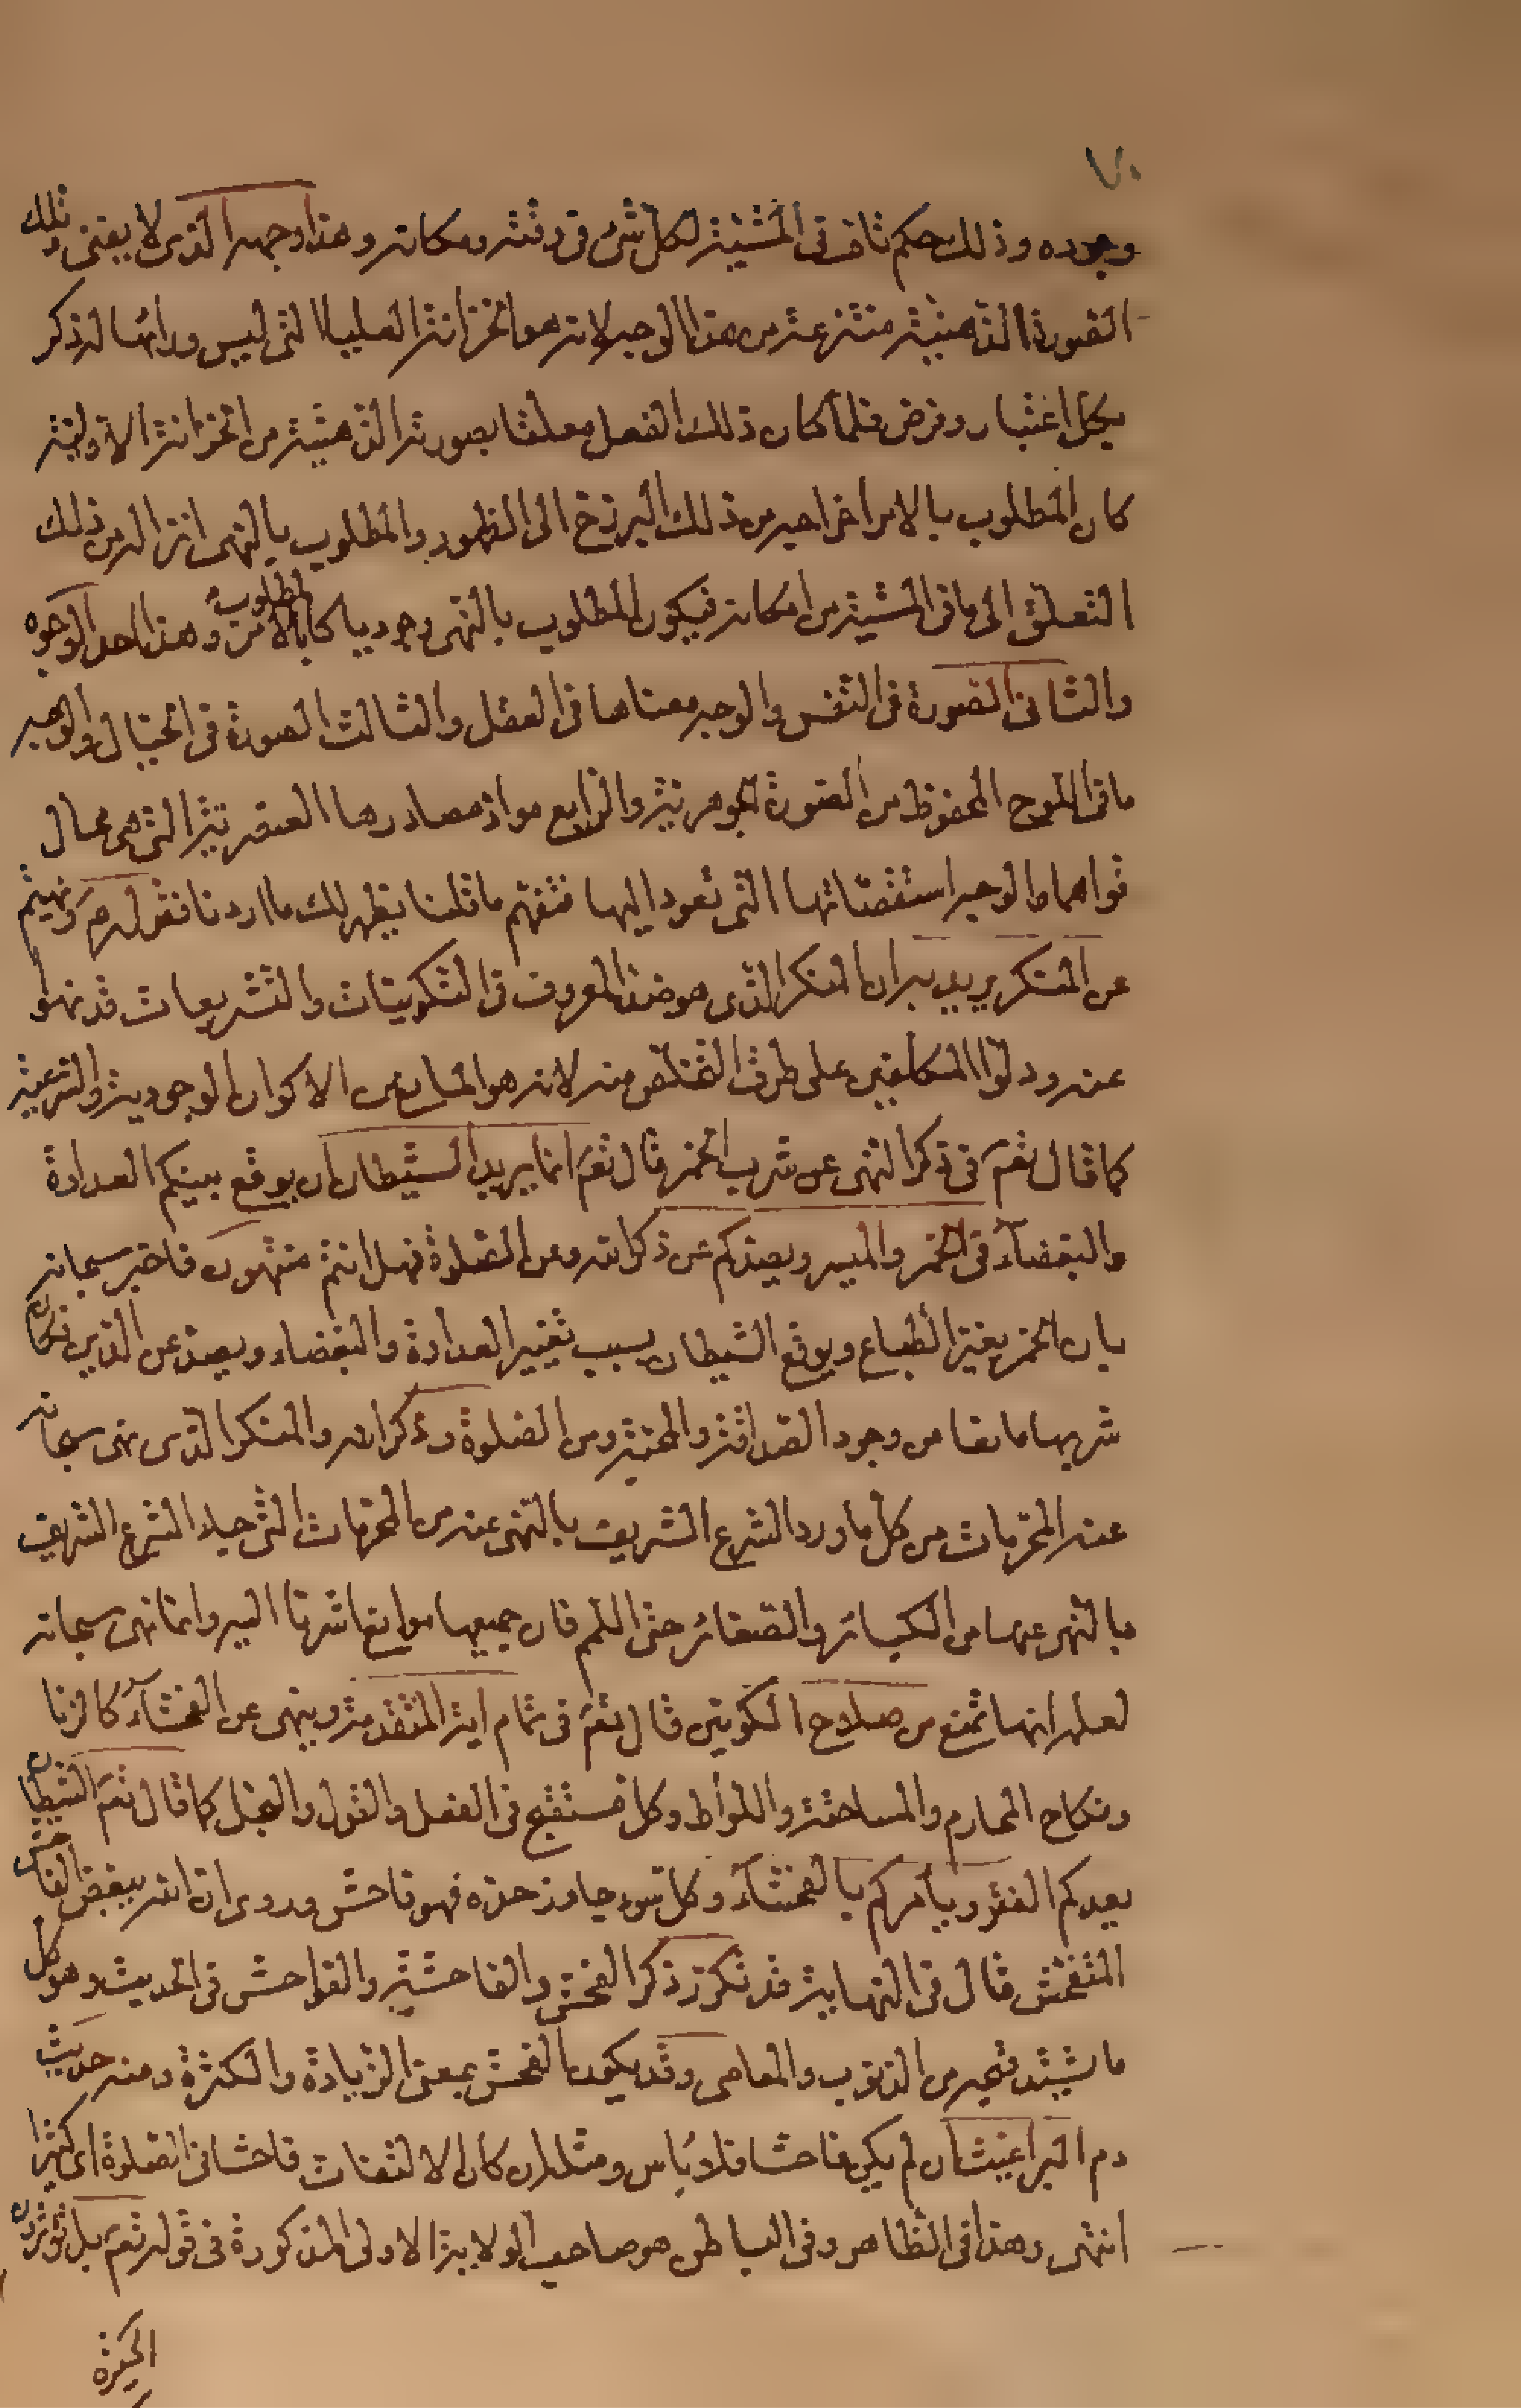 ٧٠
وجوده وذلك حكم ثان فى المشيّة لكل شئ فى وقته ومكانه وهذا وجهه الذى لا يفنى وتلك
الصورة الذهنيّة منتزعة من هذا الوجه لانه هو الخزانة العليا التى ليس وراءها له ذكر
بكل اعتبار وفرض فلما كان ذلك الفعل معلقا بصورته الذهنيّة من الخزانة الاوليّة
كان المطلوب بالامر اخراجه من ذلك البرزخ الى الظهور والمطلوب بالنهى انزاله من ذلك
التعلق الى ما فى المشيّة من امكانه فيكون المطلوب بالنهى وجوديا كالمطلوب بالامر وهذا احد الوجوه
والثانى الصورة فى النفس والوجه معناها فى العقل والثالث الصورة فى الخيال والوجه
ما فى اللوح المحفوظ من الصورة الجوهريّة والرابع موادّ مصادرها العنصريّة التى هى محال
قواها والوجه استقصّاتها التى تعود اليها فتفهم ما قلنا يظهر لك ما اردنا فقوله ع ونهيتم
عن المنكر يريد به ان المنكر الذى هو ضدّ المعروف فى التكوينات والتشريعات قد نهوا
عنه ودلّوا المكلّفين على طرق التخلّص منه لانه هو المانع من الاكوان الوجودية والشرعيّة
كما قال تع فى ذكر النهى عن شرب الخمر قال تع انما يريد الشيطان ان يوقع بينكم العداوة
والبغضآء فى الخمر والميسر ويصدكم عن ذكر الله وعن الصلوة فهل انتم منتهون فاخبر سبحانه
بان الخمر يغيّر الطباع ويوقع الشيطان بسبب تغيير العداوة والبغضاء ويصدّ عن الذين فكان
شربها مانعا من وجود الصداقة والمحبّة ومن الصلوة وذكر الله والمنكر الذى نهى سبحانه
عنه المحرّمات من كل ما ورد الشرع الشريف بالنهى عنه من المحرمات التى جاء الشرع الشريف
بالنهى عنها من الكبائر والصغائر حتى اللمم فان جميعها موانع لما شرنا اليه وانما نهى سبحانه
لعلمه انها تمنع من صلاح الكونين قال تع فى تمام اية المتقدمة وينهى عن الفحشآء كالزنا
ونكاح المحارم والمساحقة واللواط وكل مستقبح فى الفعل والقول والبخل كما قال تع الشيطان
يعدكم الفقر ويأمركم بالفحشآء وكل سوء جاوز حدّه فهو فاحش وروى ان الله يبغض الفاحش
المتفحّش قال فى النهاية قد تكرّر ذكر الفحش والفاحشة والفواحش فى الحديث وهو كل
ما يشتد قبحه من الذنوب والمعاصى وقد يكون الفحش بمعنى الزيادة والكثرة ومنه حديث
دم البراغيث ان لم يكن فاحشا فلا بأس ومثله ان كان الالتفات فاحشا فى الصلوة اى كثيرا
انتهى وهذا فى الظاهر وفى الباطن هو صاحب الولاية الاولى المذكورة فى قوله تع بل تؤثرون
الحيوة